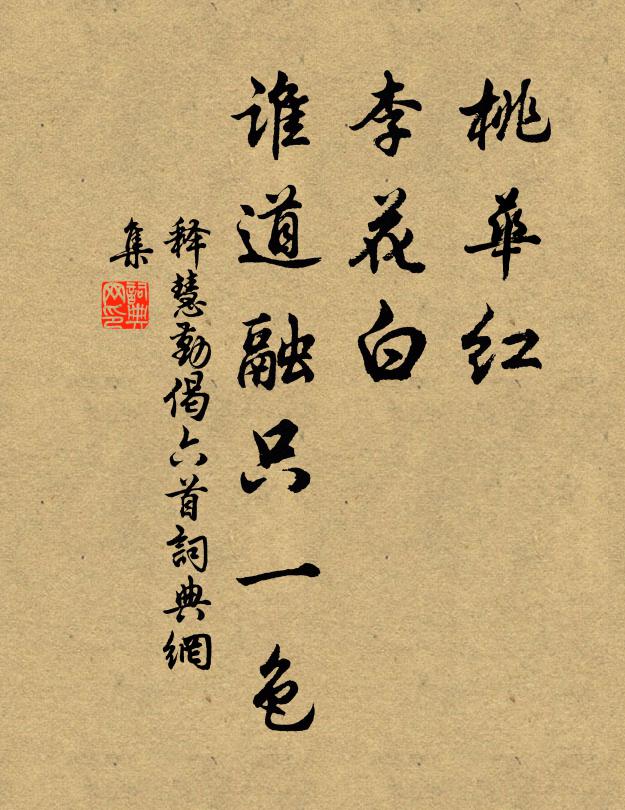 桃華红
李花白
谁道融只一色
释慧勤偈六首詞典網
集
詞典
网印